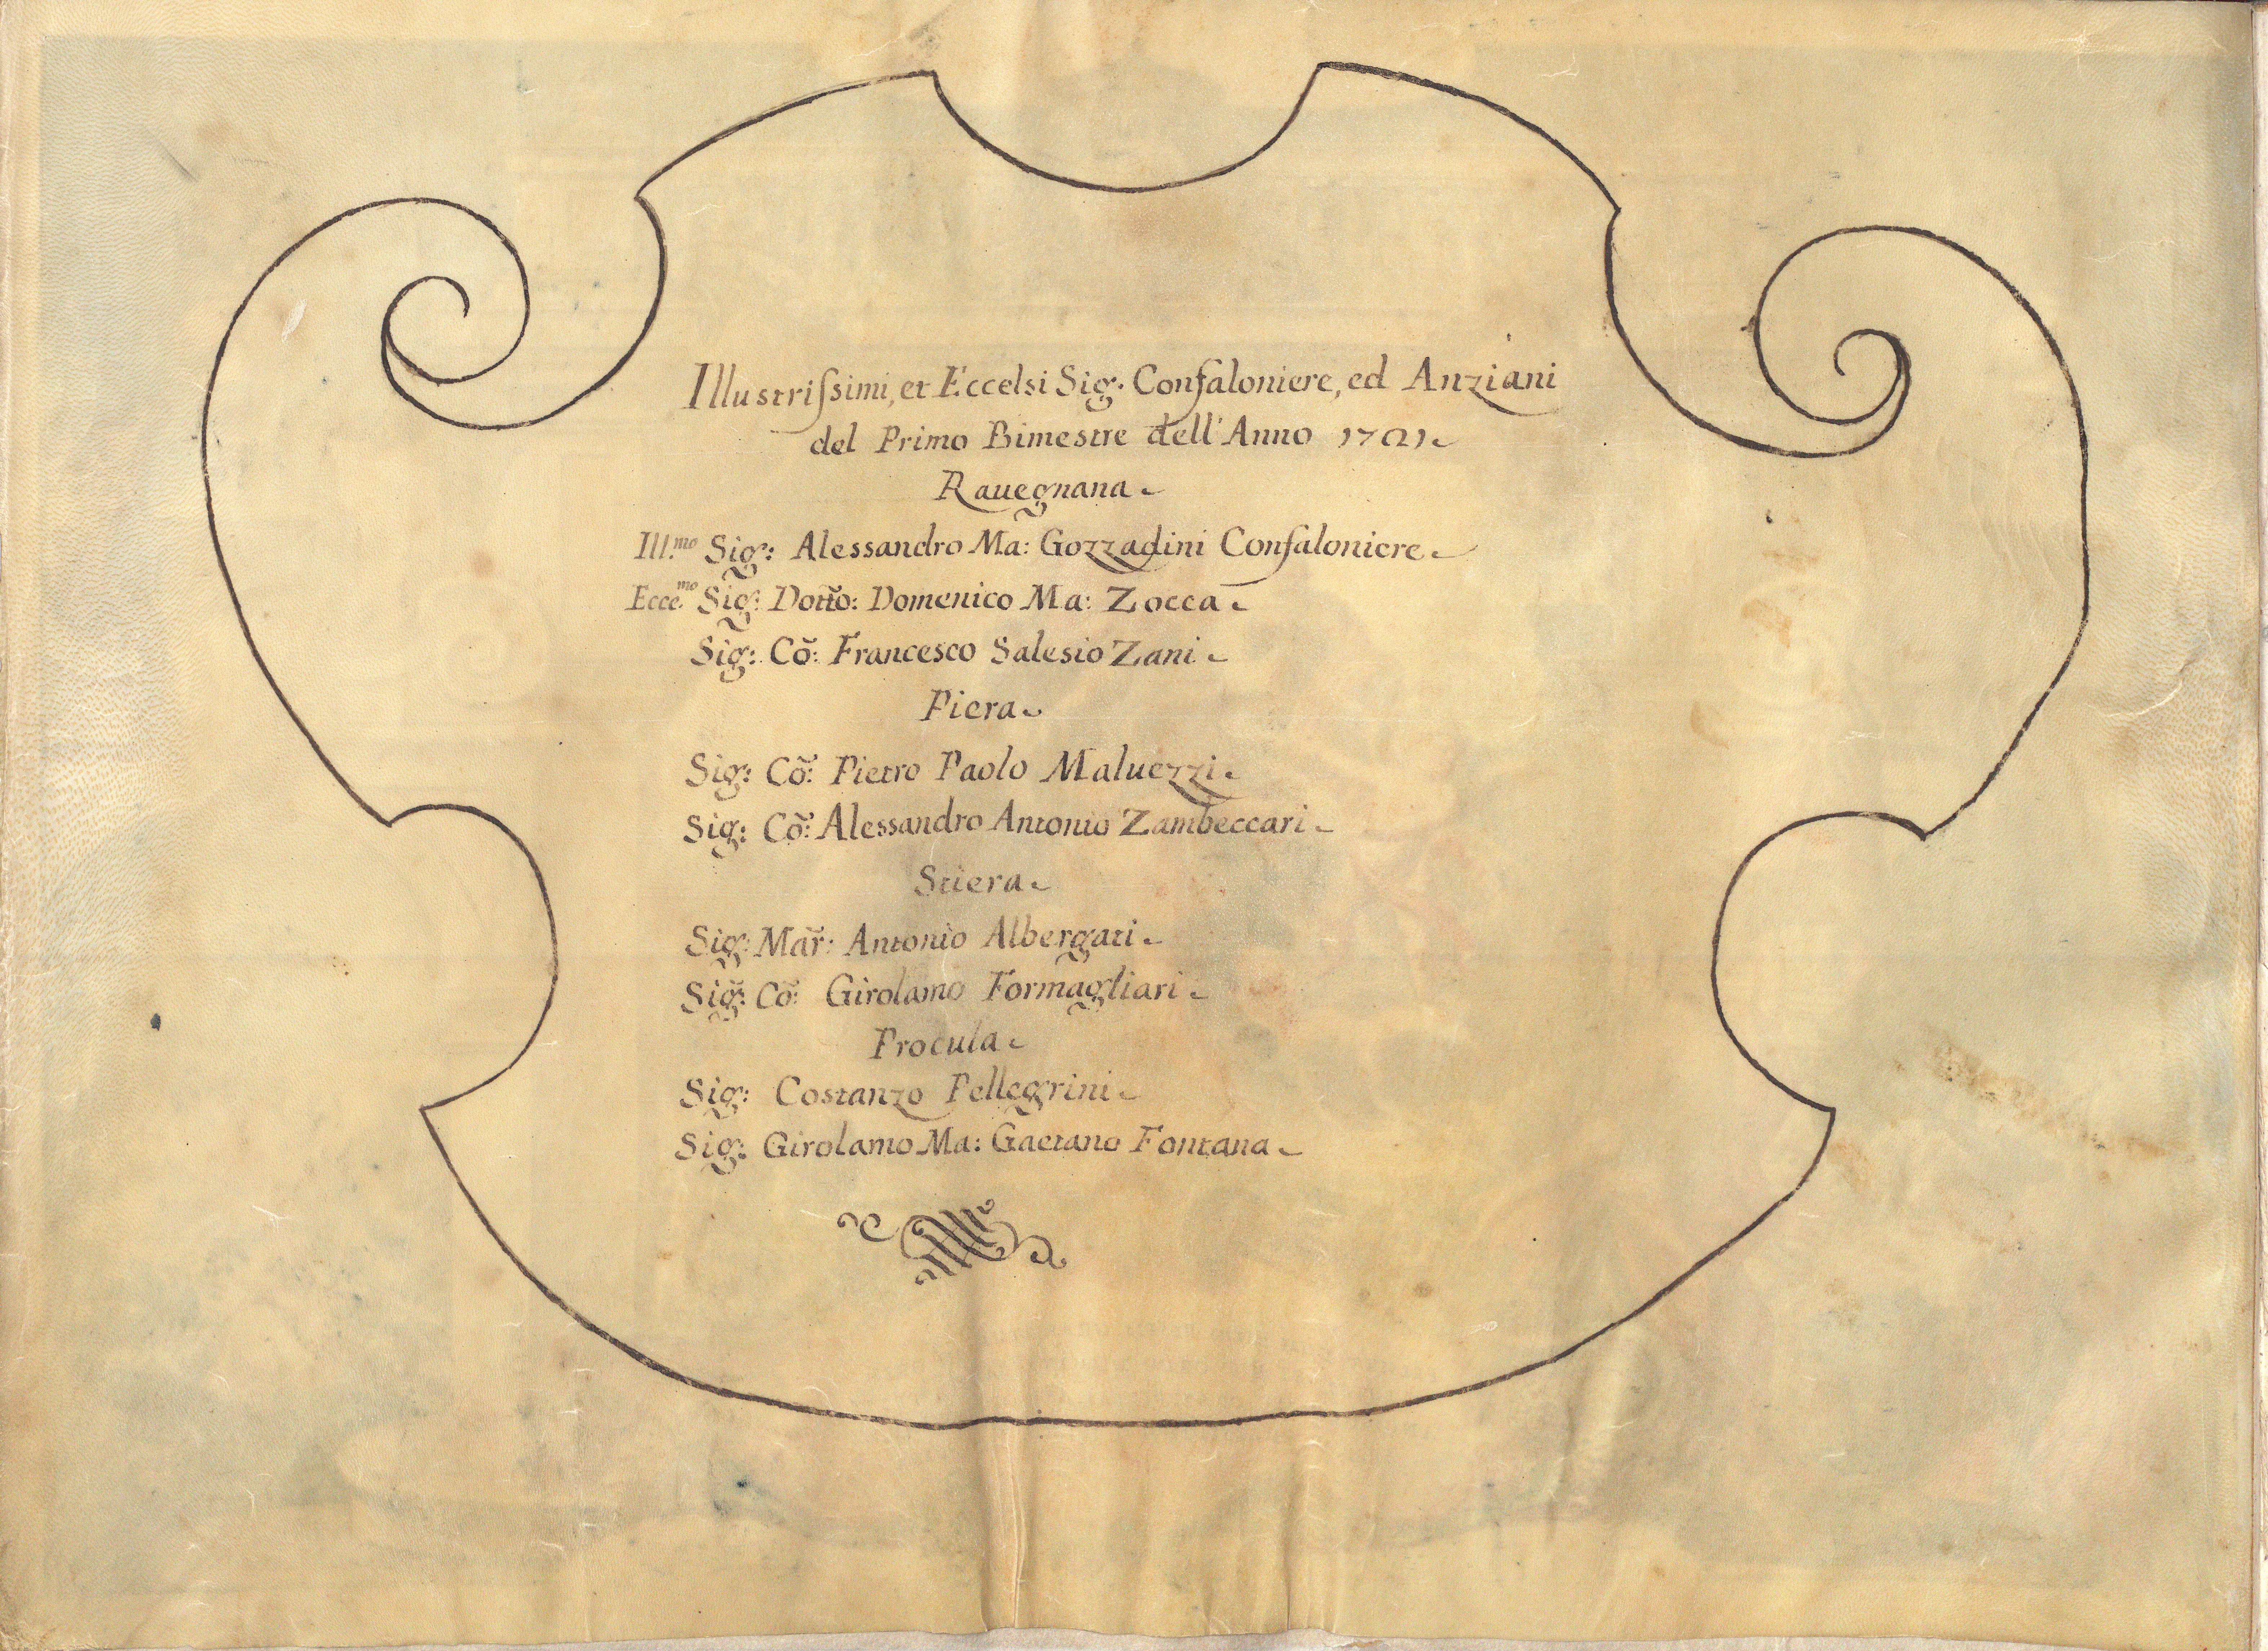 Illustriſsimi, et Eccelsi Sig: Confaloniere, ed Anziani
del Primo Bimestre dell'Anno 1721
Rauegnana
Ill.mo Sig: Alessandro Ma: Gozzadini Confaloniere
Ecce.mo Sig: Dott̃o: Domenico Ma: Zocca
Sig: Cõ: Francesco Salesio Zani
Piera
Sig: Cõ: Pietro Paolo Maluezzi
Sig: Cõ: Alessandro Antonio Zambeccari
Stiera
Sig: Mar̃: Antonio Albergati
Sig: Cõ: Girolamo Formagliari
Procula
Sig: Costanzo Pellegrini
Sig: Girolamo Ma: Gaetano Fontana